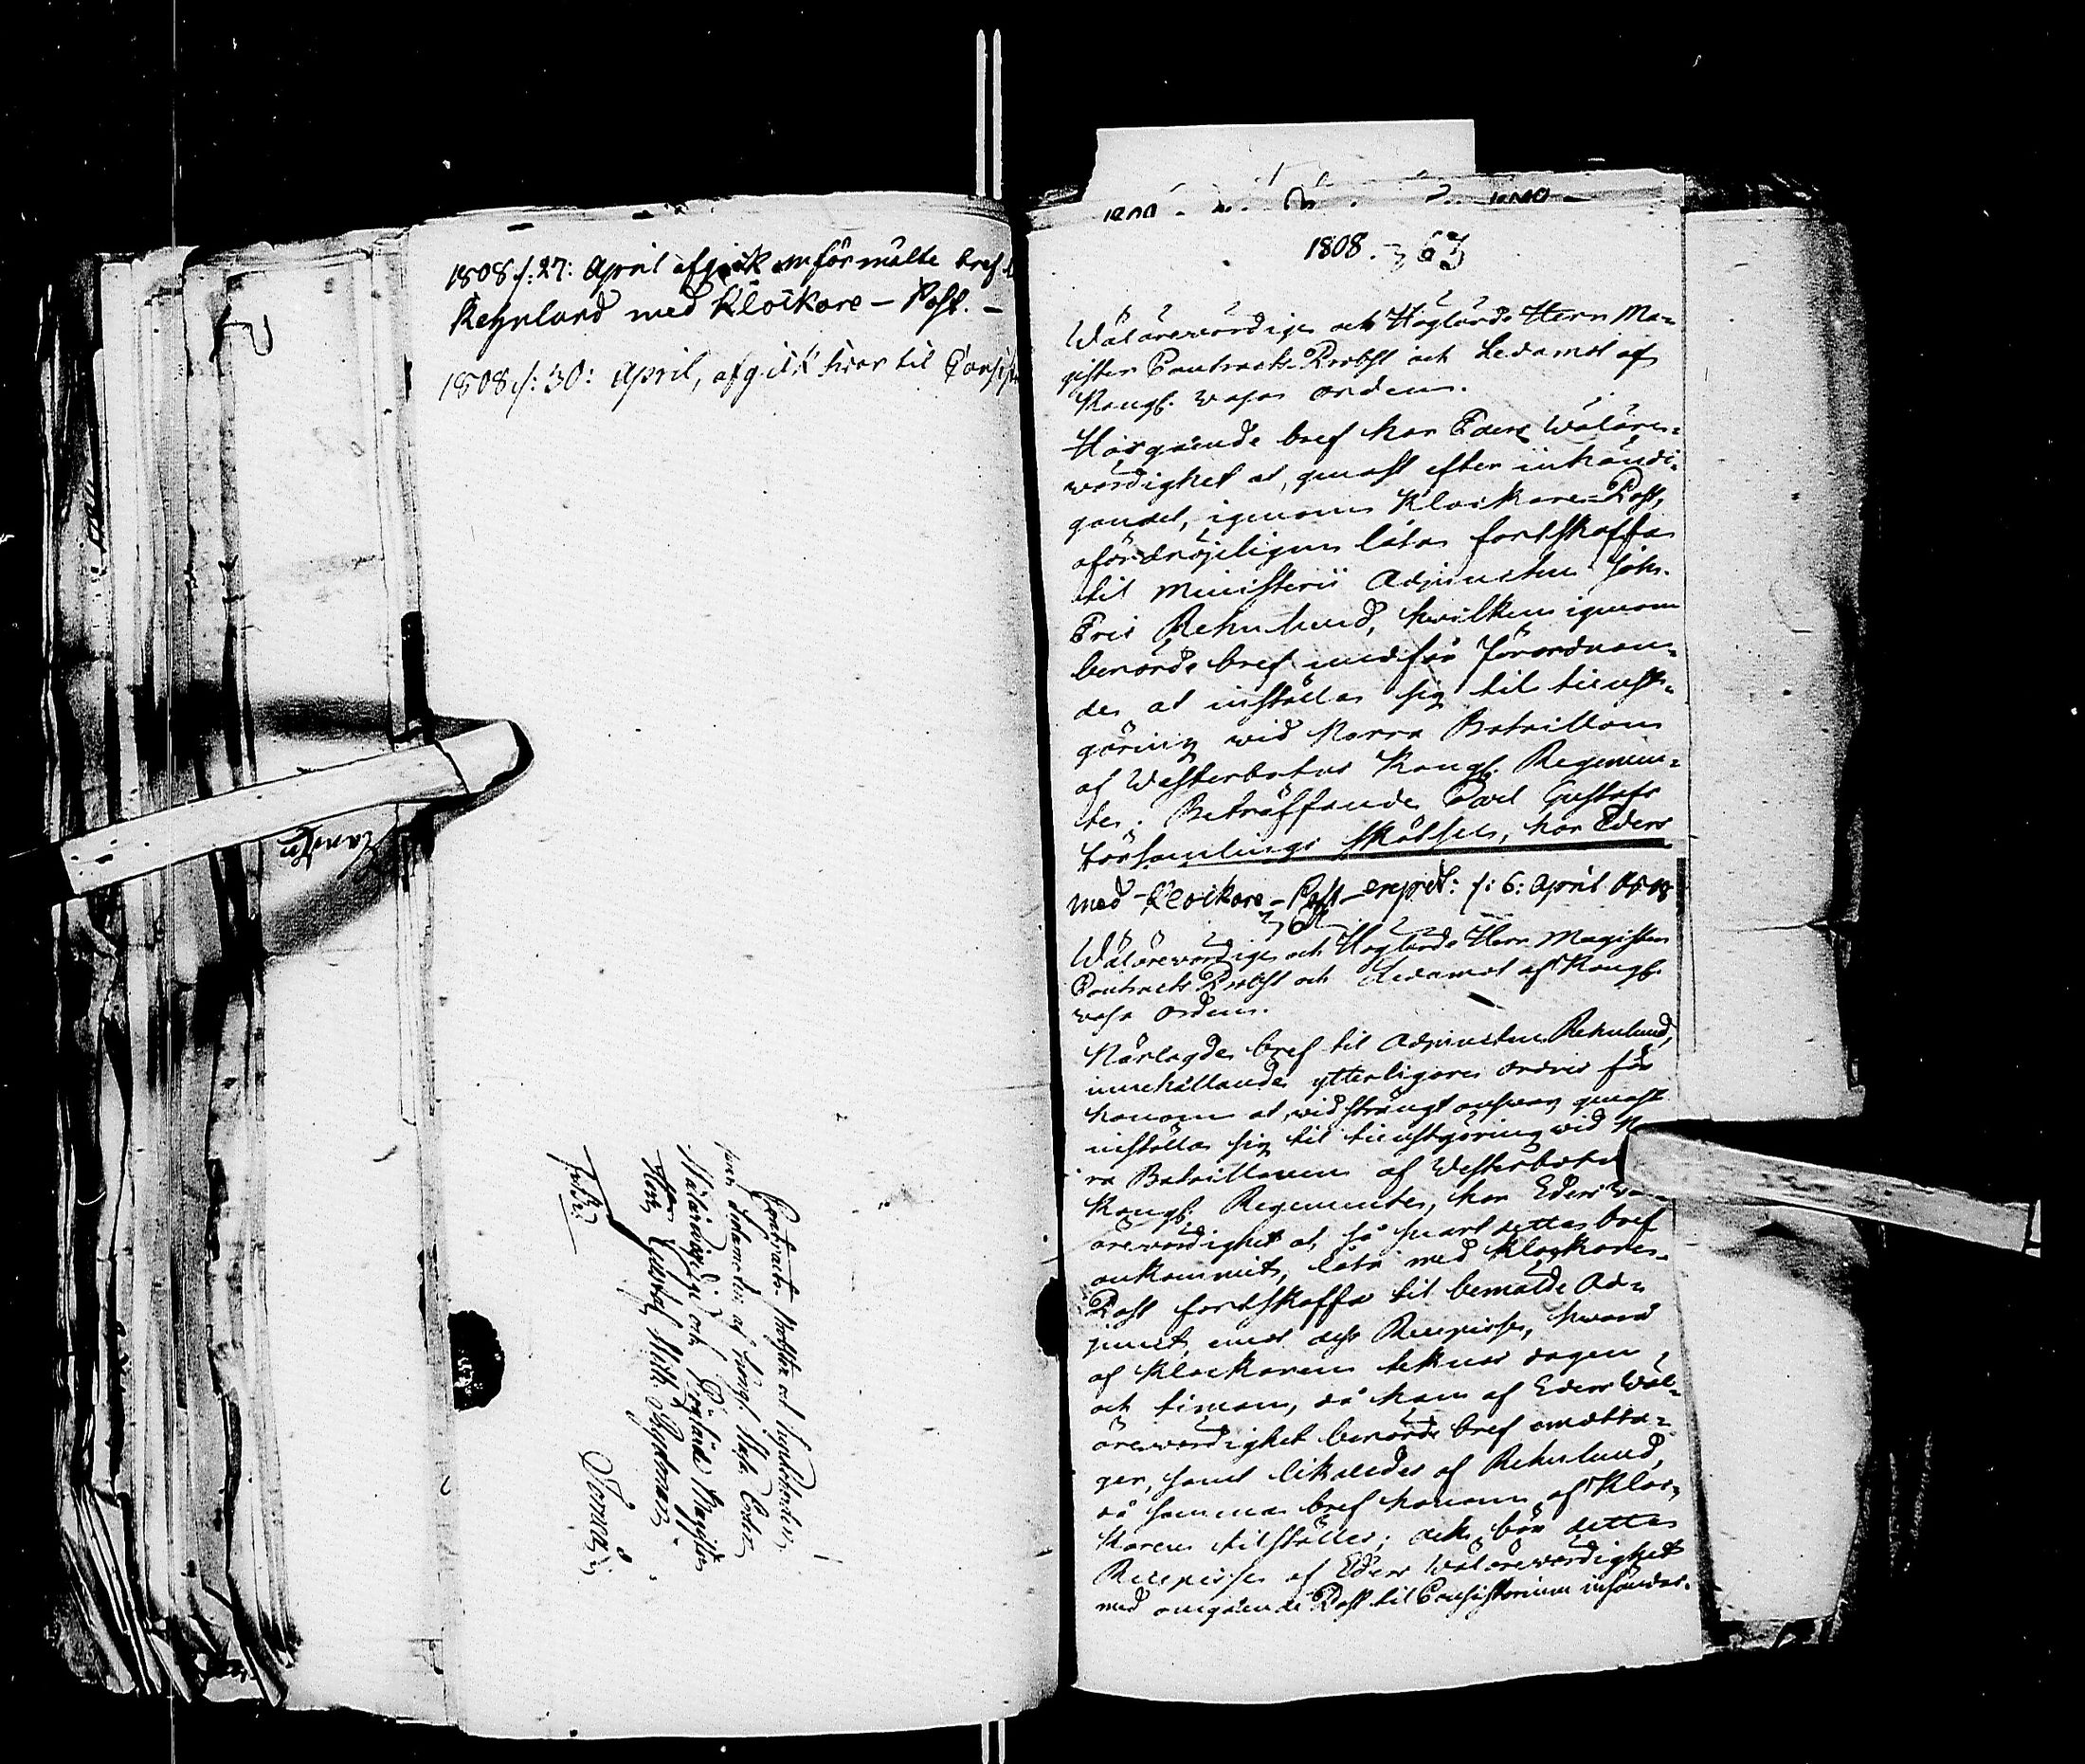 1808 d: 27: April afgick omförmälte bref
Rehnlund med Klåckare-Post. -
1808 d: 30: April, afgick svar til Consist
Contracts Probsten och Kyrkoherden
samt Ledamoten af Kongl. Wasa Orden
Wälärewördige och Höglärde Magister
Herr
Tområ
1808. 63
Wälärewördige och Höglärde Herr Ma-
gister Contracts-Probst och Ledamot af
Kongl. Wasa Orden.
Härgående bref har Eders Wäläre-
wördighet at, genast efter inhändi-
gandet, igenom Klockare-Post,
ofördröjeligen låta fortskaffa
til Ministerii Adjuncten Joh.
Eric Rehnlund, hvilken igenom
berörde bref undfår förordnan-
de at inställa sig til tienst-
göring wid Norra Bataillon
af Westerbotns Kongl. Regemen-
te. Beträffande Carl Gustafs
församlings skötsel, har Eders
med Klockare-Post-exped: d: 6: April 1808
Wälärewördige och Höglärde Herr Magister
Contracts Probst och Ledamot af Kongl.
Wasa Orden.
Närlagde bref til Adjuncten Rehnlund,
innehållande ytterligare ordres för
honom at, wid strängt answar, genast
inställa sig til tienstgöring wid N
ra Bataillonen af Westerbotn
Kongl. Regemente, har Eders Wäl-
ärewördighet at, så snart detta bref
ankommit, låta med Klockare-
Post fortskaffa til bemälde Ad-
junct, emot dess Recepisse, hwarå
af Klockaren teknas dagen
och timan, då han af Eders Wäl-
ärewördighet berörde bref emotta-
ger, samt likaledes af Rehnlund,
då samma bref honom af Kloc-
karen tilställes; och bör detta
Recepisse af Eders Wälärewördighet
med omgående Post til Consistorium insändas.